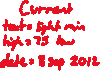 Current
text = light min
tip = 75 km
date = 8 sep 2012